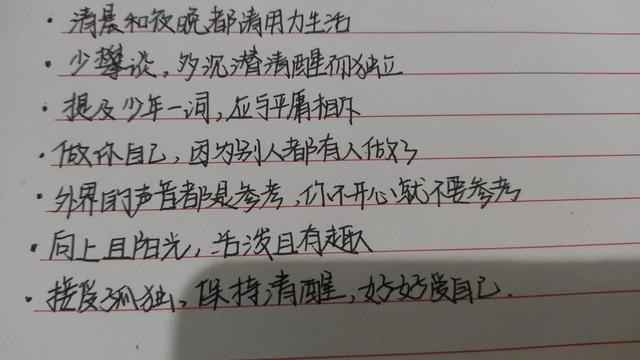 · 清晨和夜晚都请用力生活
· 少攀谈，多沉潜清醒而独立
· 提及少年一词，应与平庸相斥
· 做你自己，因为别人都有人做了
· 外界的声音都是参考，你不开心就不要参考
· 向上且阳光，活泼且有趣
· 接受孤独，保持清醒，好好爱自己.